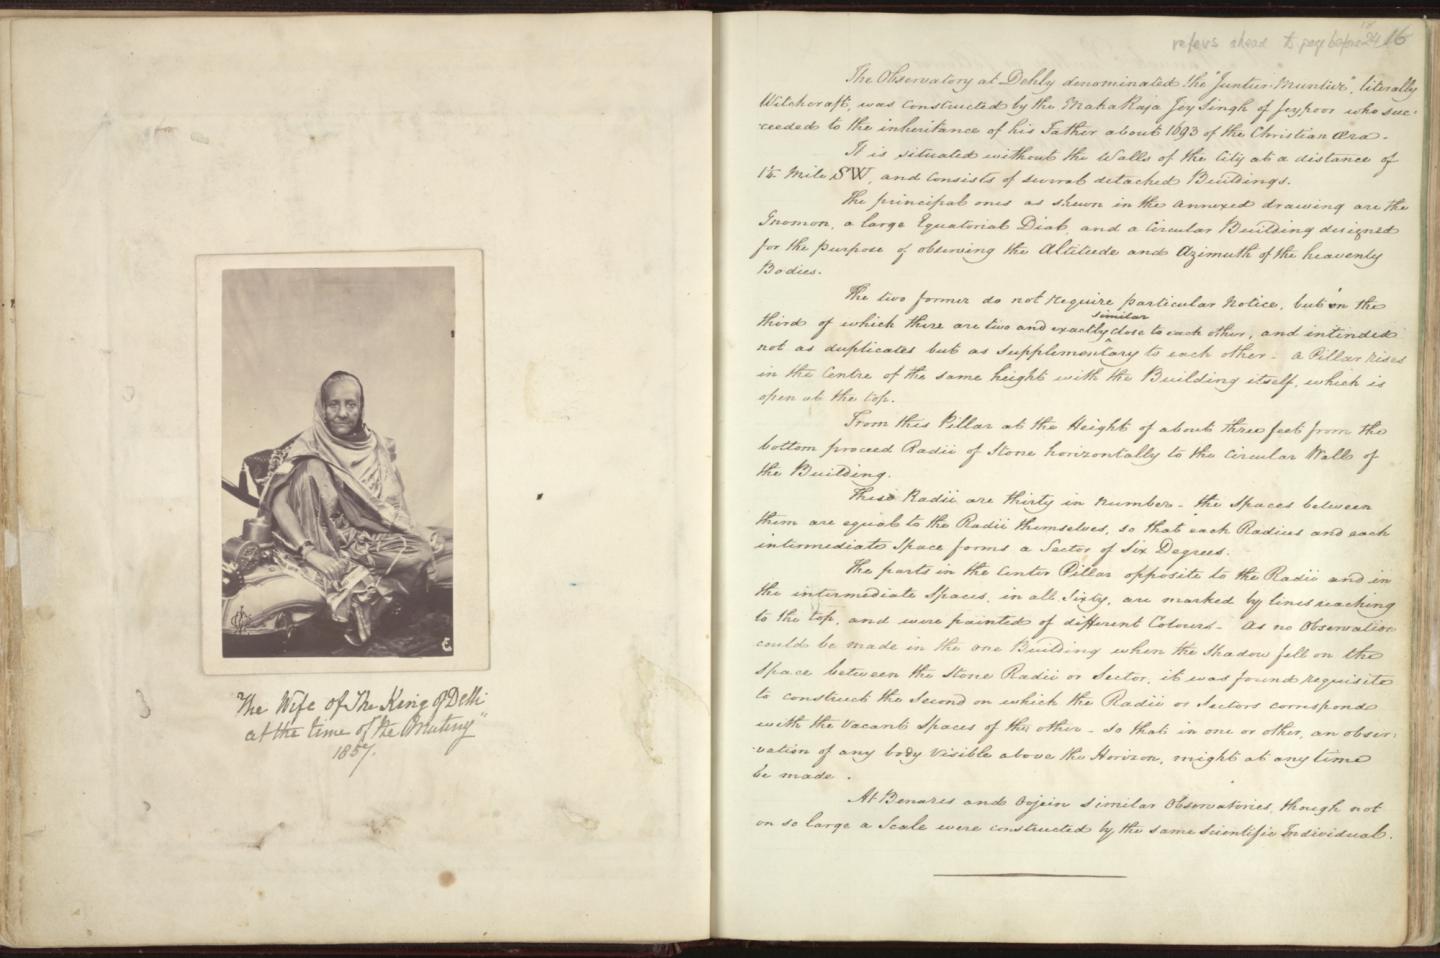 The Wife of The King of Delhi
at the time of the "Mutiny"
1857.
refers ahead to page before 24 16
The Observatory at Dehly denominated the "Juntur Muntur", literally
Witchcraft, was constructed by the Maha Raja Jey Singh of Jeypoor who suc-
ceeded to the inheritance of his Father about 1693 of the Christian Æra.
It is situated without the Walls of the City at a distance of
1¼ Mile SW, and consists of several detached Buildings.
The principal ones as shewn in the annexed drawing are the
Gnomon, a large Equatorial Dial, and a Circular Building designed
for the purpose of observing the Altitude and Azimuth of the heavenly
Bodies.
The two former do not require particular Notice, but in the
similar
third of which there are two and exactly close to each other, and intended
not as duplicates but as Supplementary to each other - a Pillar rises
in the Centre of the same height with the Building itself, which is
open at the top.
From this Pillar at the Height of about three feet from the
bottom proceed Radii of Stone horizontally to the Circular Wall of
the Building.
These Radii are thirty in number - the Spaces between
them are equal to the Radii themselves, so that each Radius and each
intermediate Space forms a Sector of Six Degrees.
The parts in the Center Pillar opposite to the Radii and in
the intermediate Spaces, in all Sixty, are marked by lines reaching
to the top, and were painted of different Colours - As no Observation
could be made in the one Building when the Shadow fell on the
Space between the Stone Radii or Sector, it was found requisite
to construct the Second on which the Radii or Sectors correspond
with the Vacant Spaces of the other - so that in one or other, an obser-
vation of any body visible above the Horizon, might at any time
be made.
At Benares and Oojein similar Observatories, though not
on so large a Scale were constructed by the same Scientific Individual.